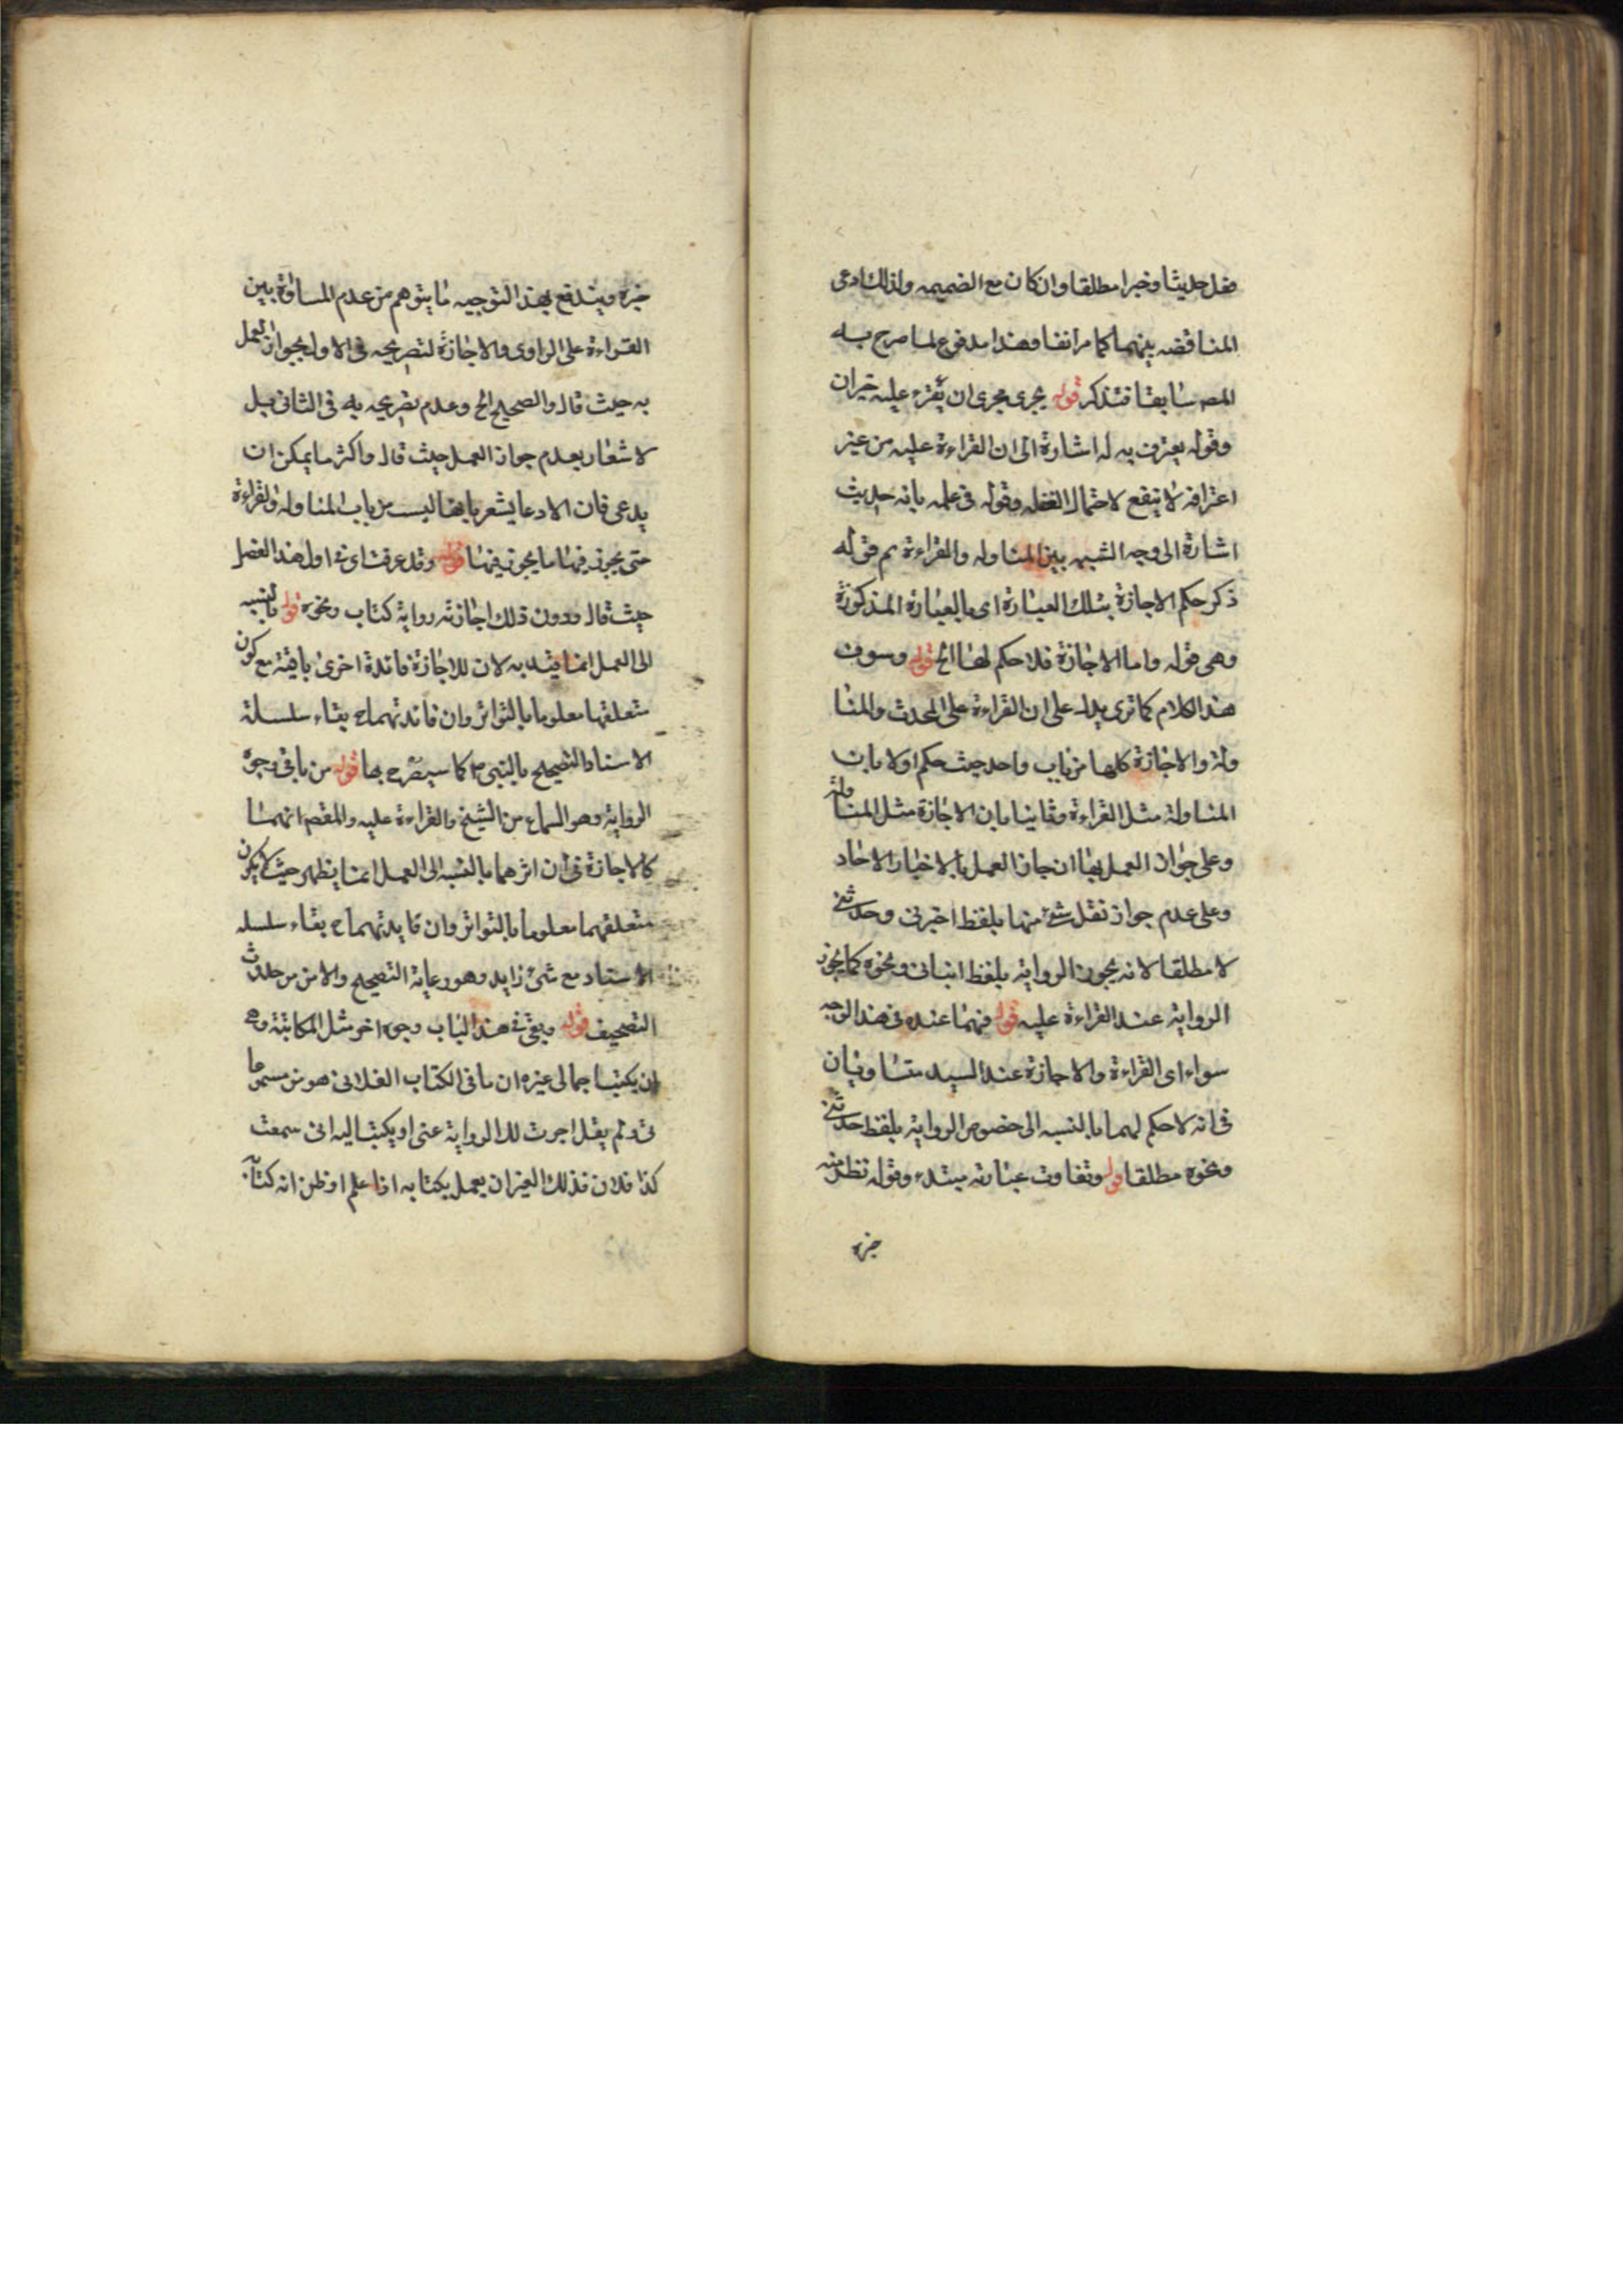 فعل حديثا وخبرا مطلقا وان كان مع الضميمه ولذلك ادعى
المناقضه بينهما كما مر انفا وهذا مدفوع لما صرح به
المصـ سابقا فتذكر قوله يجرى مجرى ان يقرء عليه خبران
وقوله يعترف به له اشارة الى ان القراءة عليه من غير
اعترافه لا ينفع لاحتمال الغفله وقوله فى علمه بانه حديث
اشارة الى وجه الشبه بين المناوله والقراءة ثم قوله
ذكر حكم الاجازة بتلك العبارة اى بالعبارة المذكورة
وهى قوله واما الاجازة فلا حكم لها الخ قوله وسوف
هذا الكلام كما ترى يدل على ان القراءة على المحدث والمنا
ولة والاجازة كلها من باب واحد حيث حكم اولا بان
المناولة مثل القراءة وثانيا بان الاجازة مثل المناولة
وعلى جواز العمل بها ان جاز العمل بالاخبار الاحاد
وعلى عدم جواز نقل شئ منها بلفظ اخبرنى وحدثنى
لا مطلقا لانه يجوز الرواية بلفظ انبانى ونحوه كما يجوز
الرواية عند القراءة عليه قوله فهما عنده فى هذا الوجه
سواء اى القراءة والاجازة عند السيد متساويان
فى انه لا حكم لهما بالنسبه الى خصوص الرواية بلفظ حدثنى
ونحوه مطلقا قوله وتفاوت عبارته مبتدء وقوله تظهر منه
خبره
خبره ويندفع بهذا التوجيه ما يتوهم من عدم المساواة بين
القراءة على الراوى والاجازة لتصريحه فى الاول بجواز العمل
به حيث قال والصحيح الخ وعدم تصريحه به فى الثانى بل
لاشعار بعدم جواز العمل حيث قال واكثر ما يمكن ان
يدعى فان الادعا يشعر بانها ليست من باب المناوله والقراءة
حتى يجوز فيها ما يجوز فيهما قوله وقد عرفت اى فى اول هذا الفصل
حيث قال ودون ذلك اجازته رواية كتاب ونحوه قوله بالنسبه
الى العمل انما قيد به لان للاجازة فائدة اخرى باقية مع كون
متعلقها معلوما بالتواتر وان فائدتهما ح بقاء سلسلة
الاسناد التصحيح بالنبى ص كما سيصرح بها قوله من باقى وجوه
الرواية وهو السماع من الشيخ والقراءة عليه والمقصـ انهما
كالاجازة فى ان اثرهما بالنسبه الى العمل انما يظهر حيث لا يكون
متعلقهما معلوما بالتواتر وان فايدتهما ح بقاء سلسله
الاسناد مع شئ زايد وهو رعاية التصحيح والامن من حدوث
التصحيف قوله وبقى فى هذا الباب وجوه اخر مثل المكاتبة وهى
ان يكتب اجمالى غيره ان ما فى الكتاب الفلانى هو من مسموعا
تى ولم يقل اجزت لك الرواية عنى او يكتب اليه انى سمعت
كذا فلان فذلك الغير ان يعمل بكتابه اذا علم او ظن انه كتابه